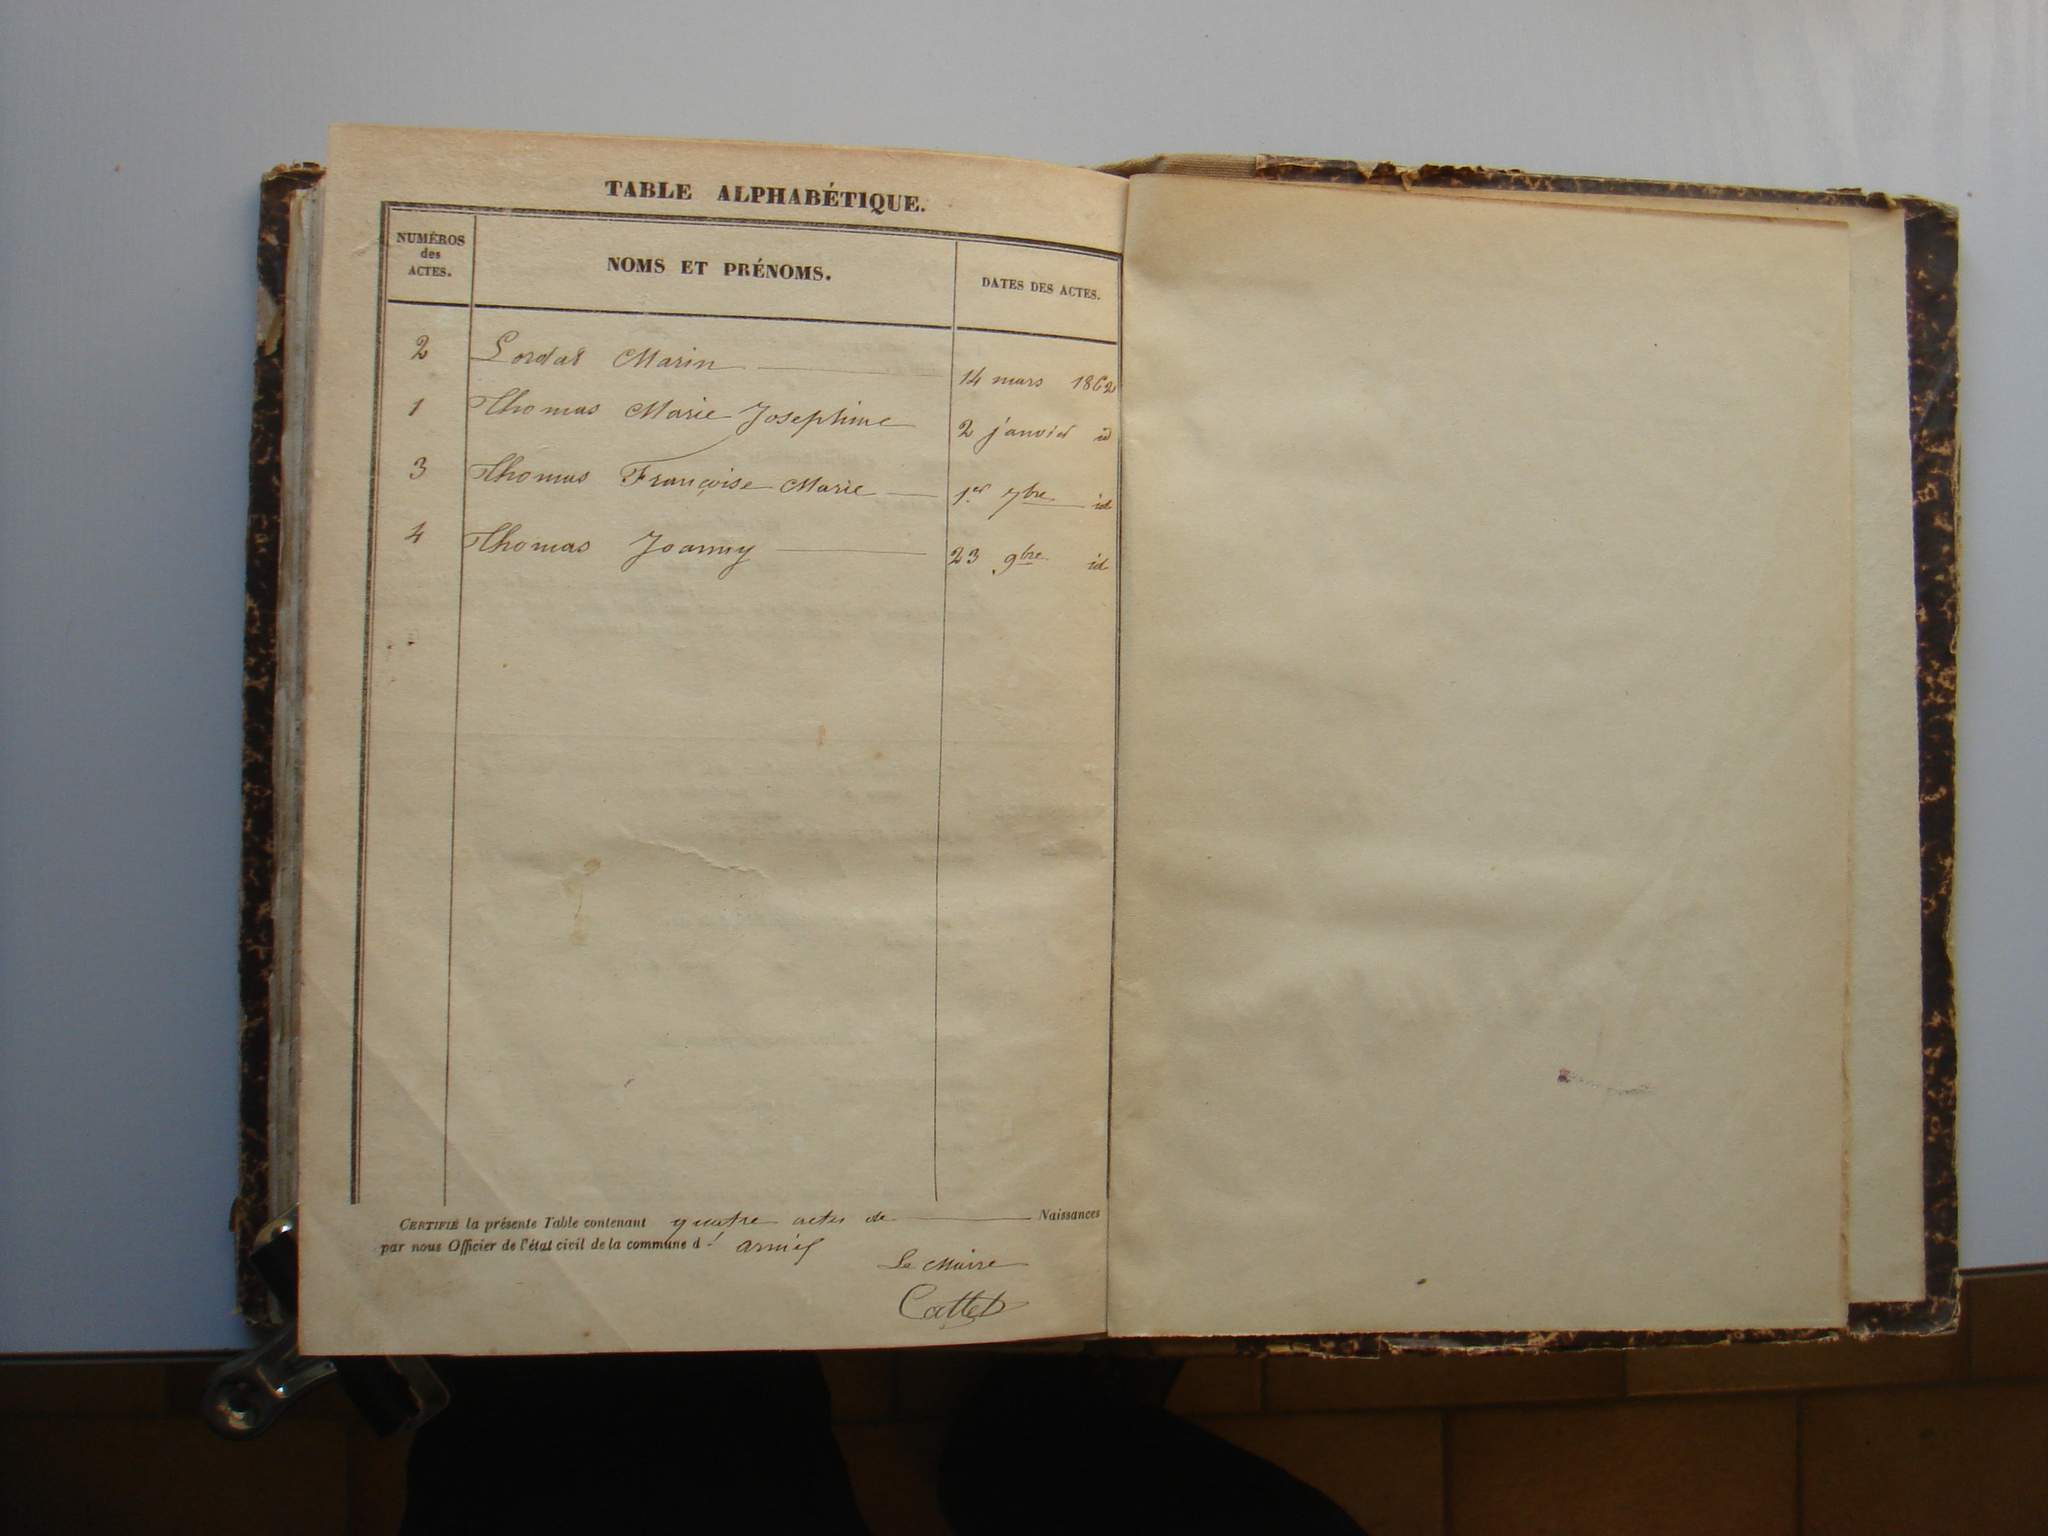 TABLE ALPHABÉTIQUE.
NUMÉROS des ACTES.
NOMS ET PRÉNOMS.
DATES DES ACTES.
2 Lordat Marin 14 mars 1862
1 Thomas Marie Josephine 2 janvier id
3 Thomas Françoise Marie 1er 7bre id
4 Thomas Joanny 23 9bre id
CERTIFIÉ la présente Table contenant quatre actes de Naissances
par nous Officier de l'état civil de la commune d'
Le Maire
Cattet